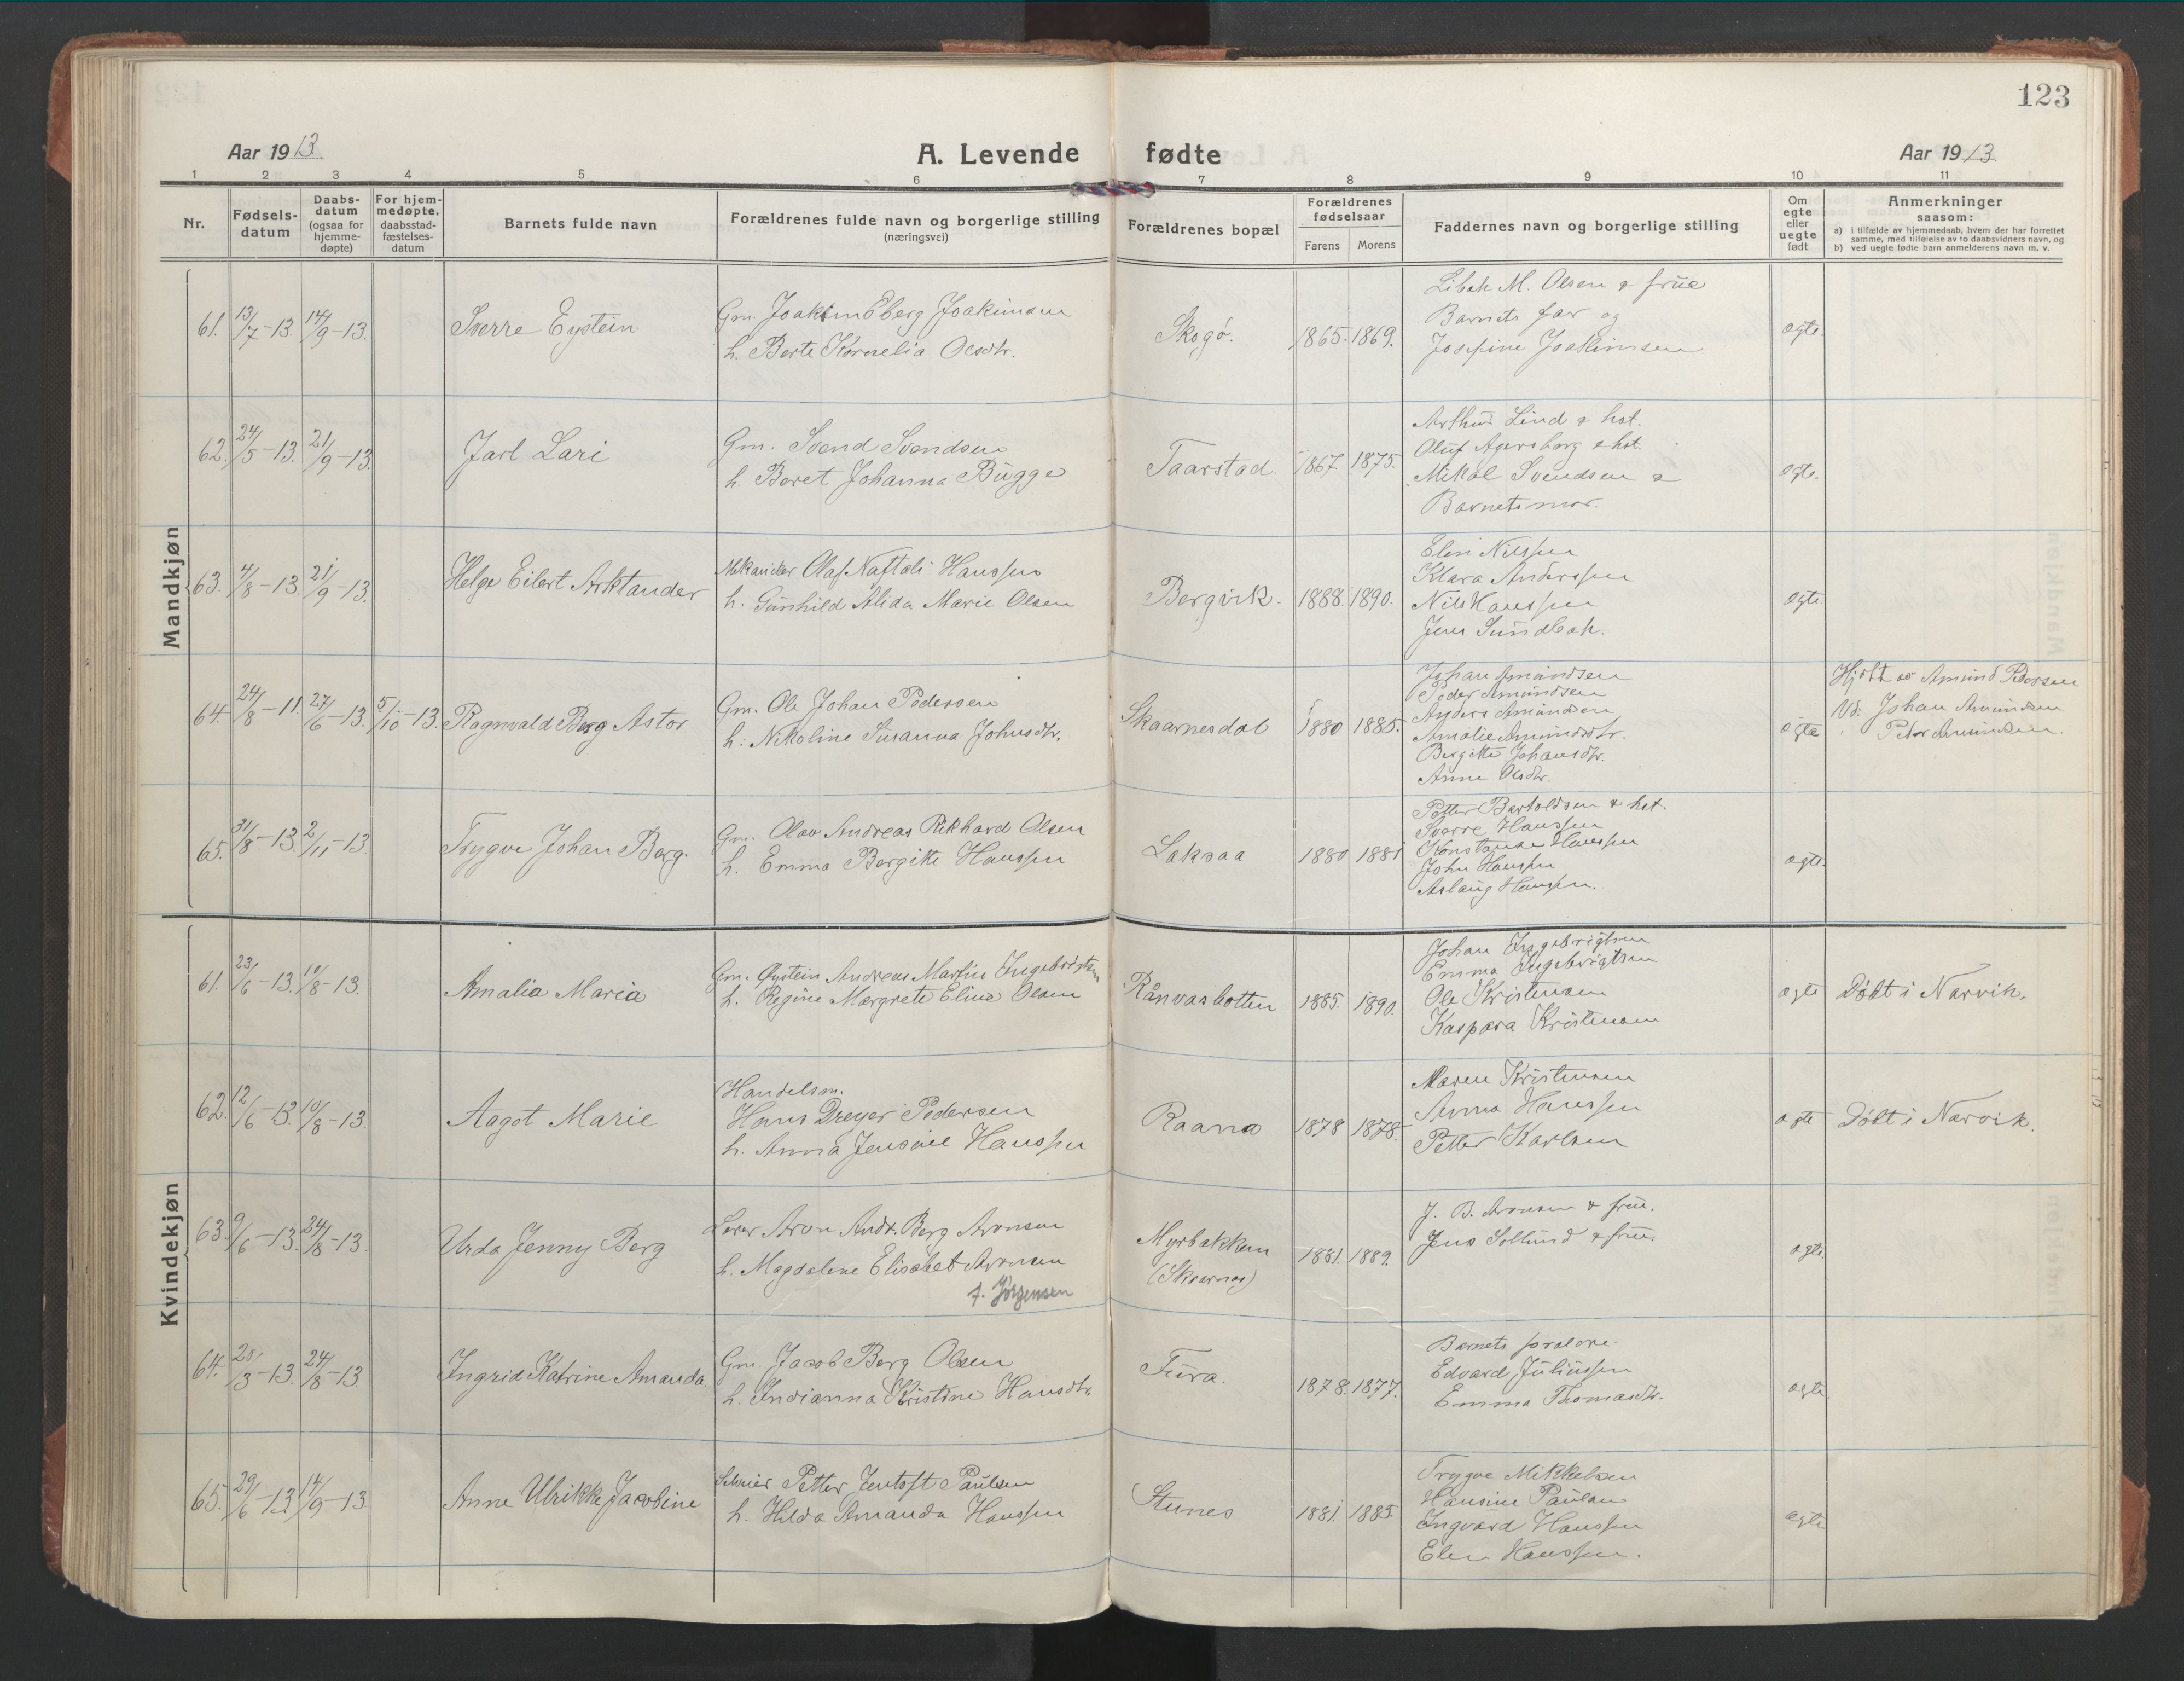 123
Aar 1913
A. Levende fødte
Aar 1913.
1 2 3 4 5 6 7 8 9 10 11
Nr.
Fødsels-
datum
Daabs-
datum
(ogsaa for
hjemme-
døpte)
For hjem-
medøpte,
daabsstad-
fæstelses-
datum
Barnets fulde navn
Forældrenes fulde navn og borgerlige stilling
(næringsvei)
Forældrenes bopæl
Forældrenes
fødselsaar
Farens Morens
Faddernes navn og borgerlige stilling
Om
egte
eller
uegte
født
Anmerkninger
saasom:
a) i tilfælde av hjemmedaab, hvem der har forrettet
samme, med tilføielse av to daabsvidners navn, og
b) ved uegte fødte barn anmelderens navn m. v.
Mandkjøn
61. 13/7-13. 14/9-13. Sverre Eystein
Gm. Joakim Eberg Joakimsen
h. Berte Kornelia Olsdtr.
Skogø. 1865. 1869.
M. Olsen & frue
Barnets far og
Josefine Joakimsen
egte.
62. 24/5-13. 21/9-13. Jarl Lari
Gm. Svend Svendsen
h. Beret Johanna Bugge
Taarstad. 1867. 1875.
Arthur Lind & hst.
Oluf Agersborg & hst.
Mikal Svendsen &
Barnets mor.
egte.
63. 4/8-13. 21/9-13. Helge Eilert Arktander
Mekaniker Olaf Naftali Hanssen
h. Gunhild Alida Marie Olsen
Bergvik. 1888. 1890.
Elen Nilssen
Klara Anderssen
Nils Hanssen
Jens Sundbak.
egte.
64. 24/8-11 27/6-13. 5/10-13. Ragnvald Berg Astor
Gm. Ole Johan Pedersen
h. Nikoline Susanna Johnsdtr.
Skaarnesdal 1880 1885.
Johan Amundsen
Peder Amundsen
Anders Amundsen
Amalie Amundsdtr.
Bergitte Johansdtr.
Anne Olsdtr.
egte
Hjdbt av Amund Pedersen
Vd: Johan Amundsen
Peder Amundsen.
65. 31/8-13. 2/11-13. Trygve Johan Berg.
Gm. Olav Andreas Rikhard Olsen
h. Emma Bergitte Hanssen
Laksaa 1880 1881
Petter Bertoldsen & hst.
Sverre Hanssen
Konstanse Hanssen
John Hanssen
Aslaug Hanssen.
egte.
Kvindekjøn
61. 23/6-13. 10/8-13. Amalia Maria
Gm. Øystein Andreas Martin Ingebrigtsen
h. Regine Margrete Elina Olsen
Rånvasbotten 1885. 1890.
Johan Ingebrigtsen
Emma Ingebrigtsen
Ole Kristensen
Kaspara Kristensen
egte Døbt i Narvik.
62. 12/6-13. 10/8-13. Aagot Marie
Handelsm.
Hans Dreyer Pedersen
h. Anna Jensine Hanssen
Raana 1878 1878.
Maren Kristensen
Anna Hanssen
Petter Karlsen
egte Døbt i Narvik.
63. 9/6-13. 24/8-13. Urda Jenny Berg
Lærer Aron Andr. Berg Aronsen
h. Magdalene Elisabet Aronsen
f. Jørgensen
Myrbakken
(Skaarnes)
1881. 1889.
J. B. Aronsen & frue.
Jens Sollund & frue
egte.
64. 13-13. 24/8-13. Ingrid Katrine Amanda.
Gm. Jacob Berg Olsen
h. Indianna Kristine Hansdtr.
Fura. 1878. 1877.
Barnets forældre.
Edvard Juliussen
Emma Thomasdtr.
egte
65. 29/6-13. 14/9-13. Anne Ulrikke Jacobine
Petter Jentoft Paulsen
h. Hilda Amanda Hanssen
Stunes 1881. 1885.
Trygve Mikkelsen
Hansine Paulsen
Ingvard Hanssen
Elen Hanssen.
egte